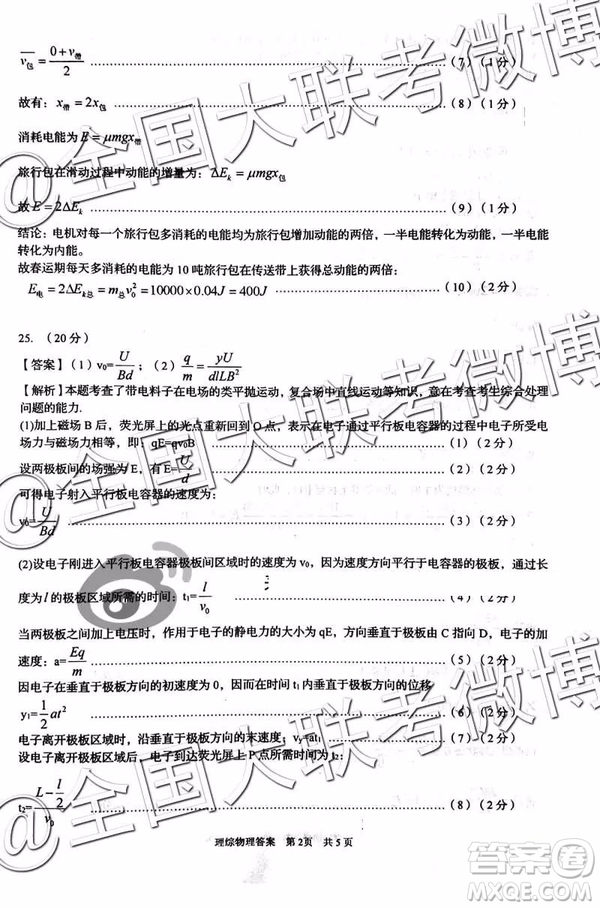 v包 = (0+v带)/2 ……(7)(1分)
故有: x带=2x包 ……(8)(1分)
消耗电能为 E=μmgx带
旅行包在滑动过程中动能的增量为: ΔEk=μmgx包
故 E=2ΔEk ……(9)(1分)
结论: 电机对每一个旅行包多消耗的电能均为旅行包增加动能的两倍, 一半电能转化为动能, 一半电能
转化为内能。
故春运期每天多消耗的电能为 10 吨旅行包在传送带上获得总动能的两倍:
E电=2ΔEk总=m总v0²=10000×0.04J=400J ……(10)(2分)
25. (20分)
【答案】(1) v0=U/Bd; (2) q/m=yU/dlLB²
【解析】本题考查了带电料子在电场的类平抛运动, 复合场中直线运动等知识, 意在考查考生综合处理
问题的能力.
(1)加上磁场 B 后, 荧光屏上的光点重新回到 O 点, 表示在电子通过平行板电容器的过程中电子所受电
场力与磁场力相等, 即: qE=qv0B ……(1)(2分)
设两极板间的场强为 E, 有 E=U/d ……(2)(2分)
可得电子射入平行板电容器的速度为:
v0=U/Bd ……(3)(2分)
(2)设电子刚进入平行板电容器极板间区域时的速度为 v0, 因为速度方向平行于电容器的极板, 通过长
度为 l 的极板区域所需的时间: t1=l/v0 ……(4)(2分)
当两极板之间加上电压时, 作用于电子的静电力的大小为 qE, 方向垂直于极板由 C 指向 D, 电子的加
速度: a=Eq/m ……(5)(2分)
因电子在垂直于极板方向的初速度为 0, 因而在时间 t1 内垂直于极板方向的位移
y1=1/2 at² ……(6)(2分)
电子离开极板区域时, 沿垂直于极板方向的末速度: vy=at1 ……(7)(2分)
设电子离开极板区域后, 电子到达荧光屏上 P 点所需时间为 t2:
t2=(L-l/2)/v0 ……(8)(2分)
理综物理答案 第2页 共5页
@全国大联考微博
@全国大联考微博
@全国大联考微博
答案圈
MXQE.COM